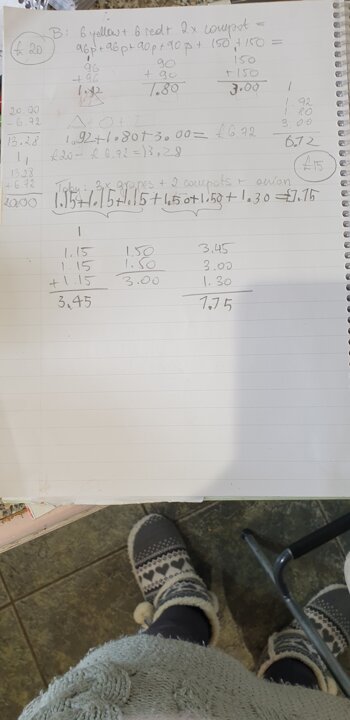 £20
B: 6 yellow + 6 red + 2 x compot =
96p + 96p + 90p + 90p + 150 + 150 =
1
96
+ 96
1.92
90
+ 90
1.80
150
+ 150
3.00
1
1.92
1.80
3.00
6.72
20.00
- 6.72
13.28
1 1
13.28
+ 6.72
20.00
1.92 + 1.80 + 3.00 = £6.72
£20 - £6.72 = 13.28
£15
3 x grapes + 2 compots + onion
1.15 + 1.15 + 1.15 + 1.50 + 1.50 + 1.30 = £7.75
1
1.15
1.15
+ 1.15
3.45
1.50
1.50
3.00
3.45
3.00
1.30
7.75